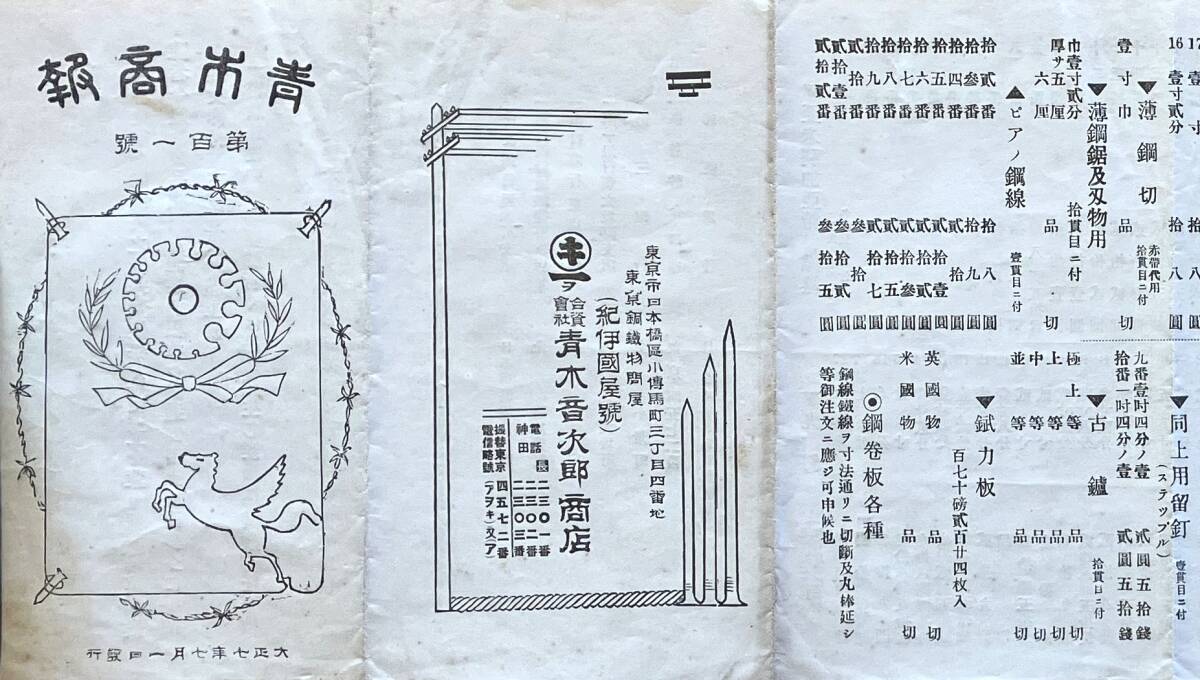 青木商報
第百一號
大正七年七月一日發行
東京市日本橋區小傳馬町三丁目四番地
東京銅鐵物問屋
(紀伊國屋號)
キ一ヲ
合資會社 青木音次郎商店
電話 長 二三〇一番
神田 二三〇二番
二三〇三番
振替東京 四五七二番
電信略號 (アヲキ)又(ア)
16 壹寸貳分 拾八圓
▼薄鋼切 赤帶代用 拾貫目ニ付
壹寸巾 品切
▼薄鋼鋸及刄物用 拾貫目ニ付
巾壹寸貳分
厚サ五厘 品切
六厘
▲ピアノ鋼線 壹貫目ニ付
拾貳番 拾八圓
拾參番 拾九圓
拾四番 貳拾圓
拾五番 貳拾壹圓
拾六番 貳拾貳圓
拾七番 貳拾參圓
拾八番 貳拾五圓
拾九番 貳拾七圓
貳拾番 參拾圓
貳拾壹番 參拾貳圓
貳拾貳番 參拾五圓
▼同上用留釘 (ステップル) 壹貫目ニ付
九番壹吋四分ノ壹 貳圓五拾錢
拾番一吋四分ノ壹 貳圓五拾錢
▼古鑢 拾貫目ニ付
極上等品切
上等品切
中等品切
並等品切
▼鉽力板 百七十磅貳百廿四枚入
英國物品切
米國物品切
◉鋼卷板各種
鋼線鐵線ヲ寸法通リニ切斷及丸棒延シ
等御注文ニ應ジ可申候也